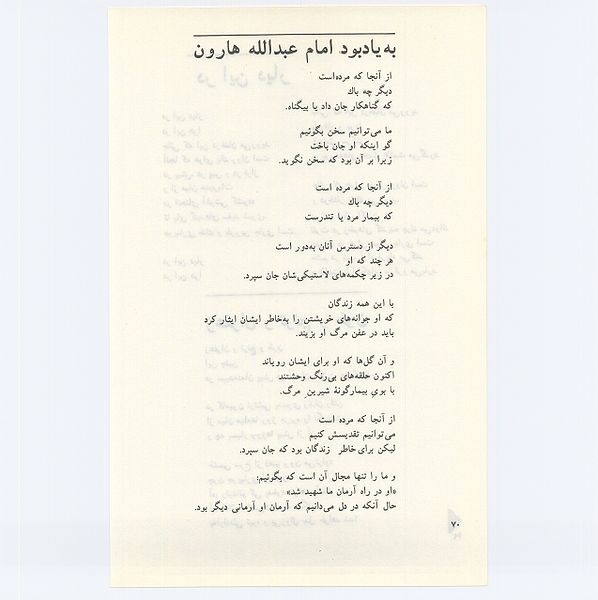 به‌یادبود امام عبدالله هارون
از آنجا که مرده‌است
دیگر چه باك
که گناهکار جان داد یا بیگناه.
ما می‌توانیم سخن بگوئیم
گو اینکه او جان باخت
زیرا بر آن بود که سخن نگوید.
از آنجا که مرده است
دیگر چه باك
که بیمار مرد یا تندرست
دیگر از دسترس آنان به‌دور است
هر چند که او
در زیر چکمه‌های لاستیکی‌شان جان سپرد.
با این همه زندگان
که او جوانه‌های خویشتن را به‌خاطر ایشان ایثار کرد
باید در عفن مرگ او بزیند.
و آن گل‌ها که او برای ایشان رویاند
اکنون حلقه‌های بی‌رنگ وحشتند
با بوی بیمارگونهٔ شیرین مرگ.
از آنجا که مرده است
می‌توانیم تقدیسش کنیم
لیکن برای خاطر زندگان بود که جان سپرد.
و ما را تنها مجال آن است که بگوئیم:
«او در راه آرمان ما شهید شد»
حال آنکه در دل می‌دانیم که آرمان او آرمانی دیگر بود.
۷۰